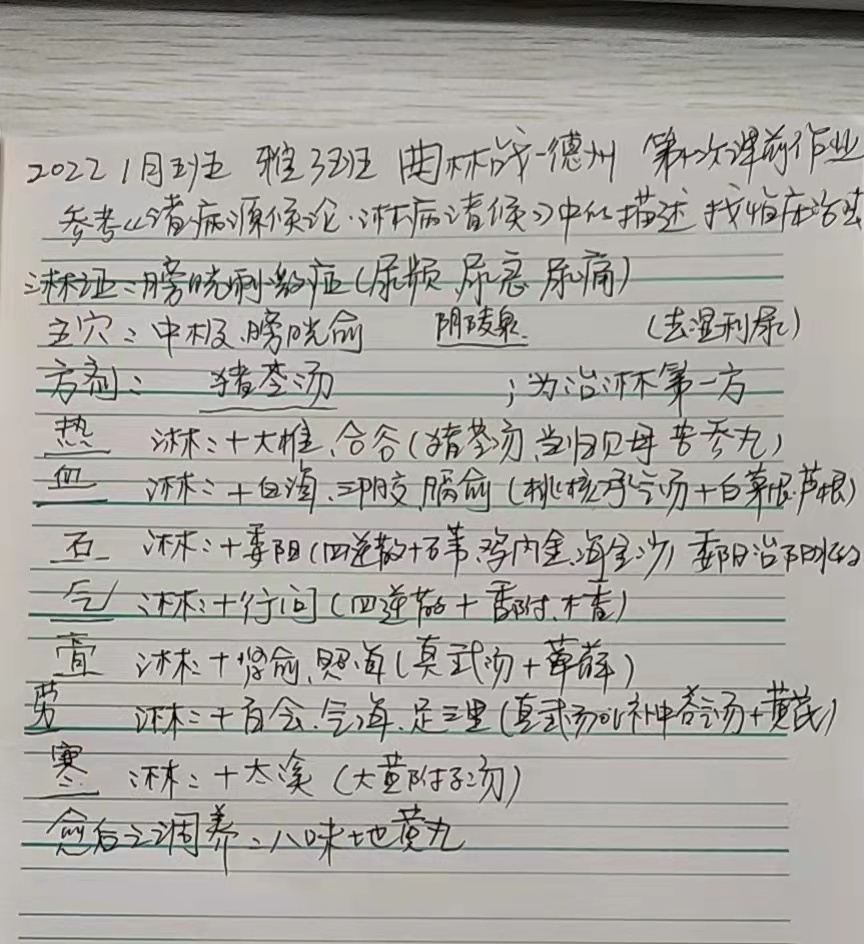 2022 1月班 雅3班 曲林成-德州 第次课前作业
参考《诸病源候论·淋病诸候》中的描述 找临床治法
淋证:膀胱刺激症(尿频 尿急 尿痛)
主穴:中极、膀胱俞 阴陵泉 (去湿利尿)
方剂: 猪苓汤 ;为治淋第一方
热 淋:+大椎、合谷(猪苓汤 当归贝母苦参丸)
血 淋:+血海、三阴交、膈俞(桃核承气汤+白茅根、芦根)
石 淋:+委阳(四逆散+石苇、鸡内金、海金沙)委阳治
气 淋:+行间(四逆散+香附、木香)
膏 淋:+肾俞、照海(真武汤+萆薢)
劳 淋:+百会、气海、足三里(真武汤 补中益气汤+黄芪)
寒 淋:+太溪(大黄附子汤)
愈后之调养:八味地黄丸